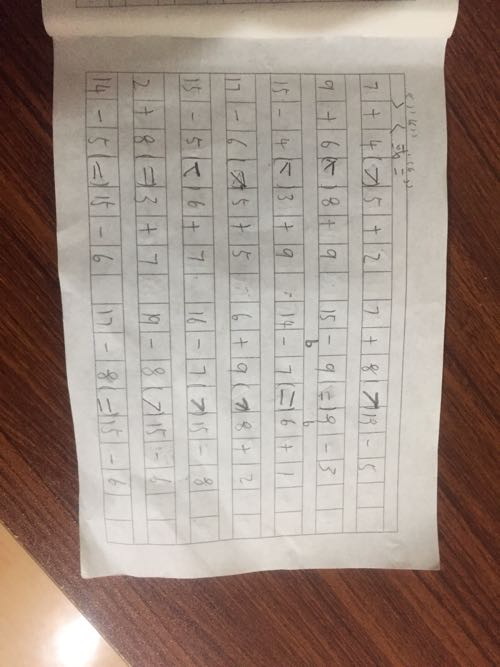 > < 或 =
7 + 4 (>) 5 + 2 7 + 8 (>) 18 - 5
9 + 6 (<) 8 + 9 15 - 9 (=) 9 - 3
6 6
15 - 4 (<) 3 + 9 14 - 7 (=) 6 + 1
17 - 6 (>) 5 + 5 6 + 9 (>) 8 + 2
15 - 5 (<) 6 + 7 16 - 7 (>) 15 - 8
2 + 8 (=) 3 + 7 19 - 8 (>) 15 - 6
14 - 5 (=) 15 - 6 17 - 8 (=) 15 - 6